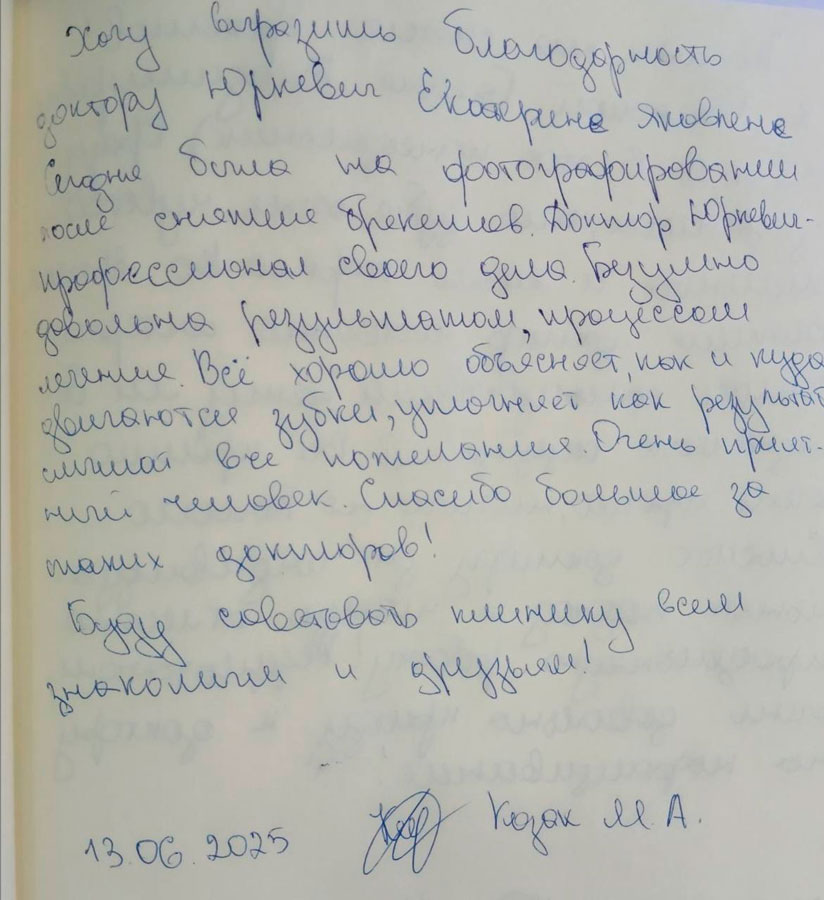 Хочу выразить благодарность
доктору Юркевич Екатерине Яковлене
Сегодня была на фотографировании
после снятие брекетов. Доктор Юркевич-
профессионал своего дела. Безумно
довольна результатом, процессом
лечения. Всё хорошо объясняет, как и куда
двигаются зубки, уточняет как результат
слышит все пожелания. Очень прият-
ный человек. Спасибо большое за
таких докторов!
Буду советовать клинику всем
знакомым и друзьям!
13.06.2025 Козак М. А.